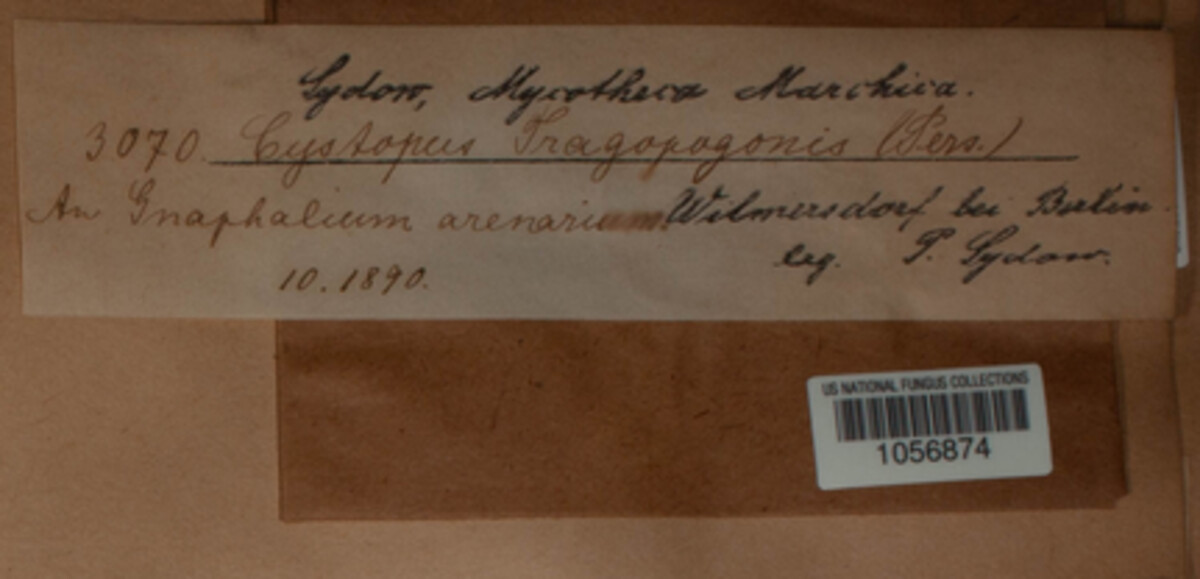 Sydow, Mycotheca Marchica.
3070. Cystopus Tragopogonis (Pers.)
An Gnaphalium arenarium. Wilmersdorf bei Berlin.
leg. P. Sydow.
10. 1890.
US NATIONAL FUNGUS COLLECTIONS
1056874